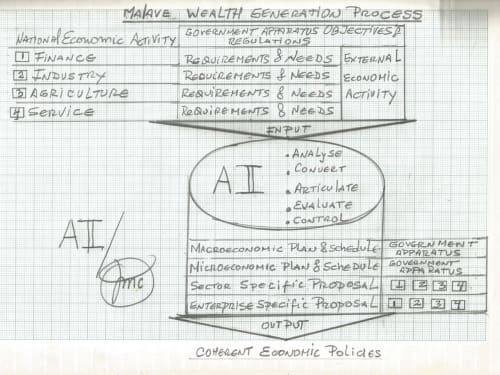 MALAVE WEALTH GENERATION PROCESS
NATIONAL ECONOMIC ACTIVITY
GOVERNMENT APPARATUS OBJECTIVES &
REGULATIONS
1 FINANCE
REQUIREMENTS & NEEDS
2 INDUSTRY
REQUIREMENTS & NEEDS
3 AGRICULTURE
REQUIREMENTS & NEEDS
4 SERVICE
REQUIREMENTS & NEEDS
EXTERNAL
ECONOMIC
ACTIVITY
INPUT
AI
• ANALYSE
• CONVERT
• ARTICULATE
• EVALUATE
• CONTROL
AI/
mc
MACROECONOMIC PLAN & SCHEDULE
GOVERNMENT
APPARATUS
MICROECONOMIC PLAN & SCHEDULE
GOVERNMENT
APPARATUS
SECTOR SPECIFIC PROPOSAL
1 2 3 4
ENTERPRISE SPECIFIC PROPOSAL
1 2 3 4
OUTPUT
COHERENT ECONOMIC POLICIES